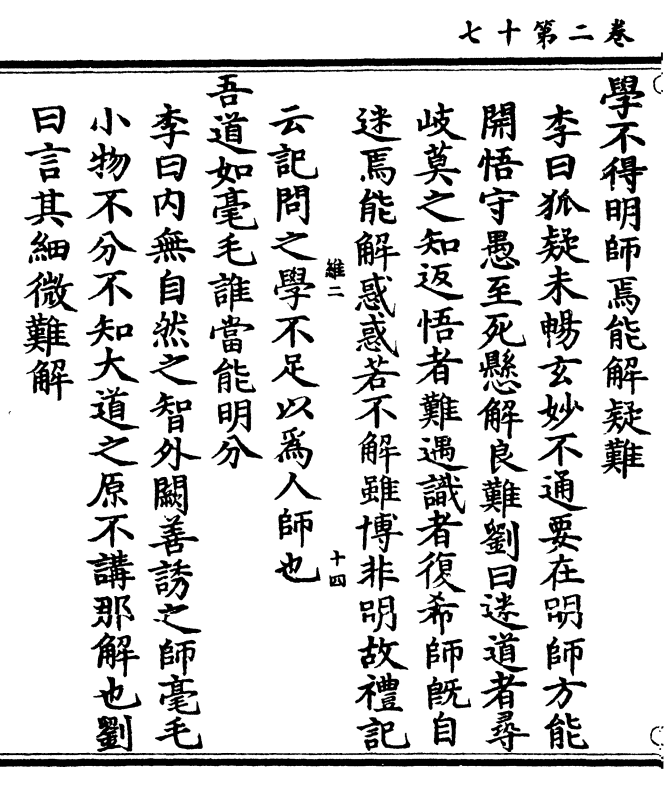 七十第二卷
學不得明師焉能解疑難
李曰狐疑未暢玄妙不通要在明師方能
開悟守愚至死懸解良難劉曰迷道者尋
岐莫之知返悟者難遇識者復希師既自
迷焉能解惑惑若不解雖博非明故禮記
維二 十四
云記問之學不足以爲人師也
吾道如毫毛誰當能明分
李曰内無自然之智外闕善誘之師毫毛
小物不分不知大道之原不講那解也劉
曰言其細微難解